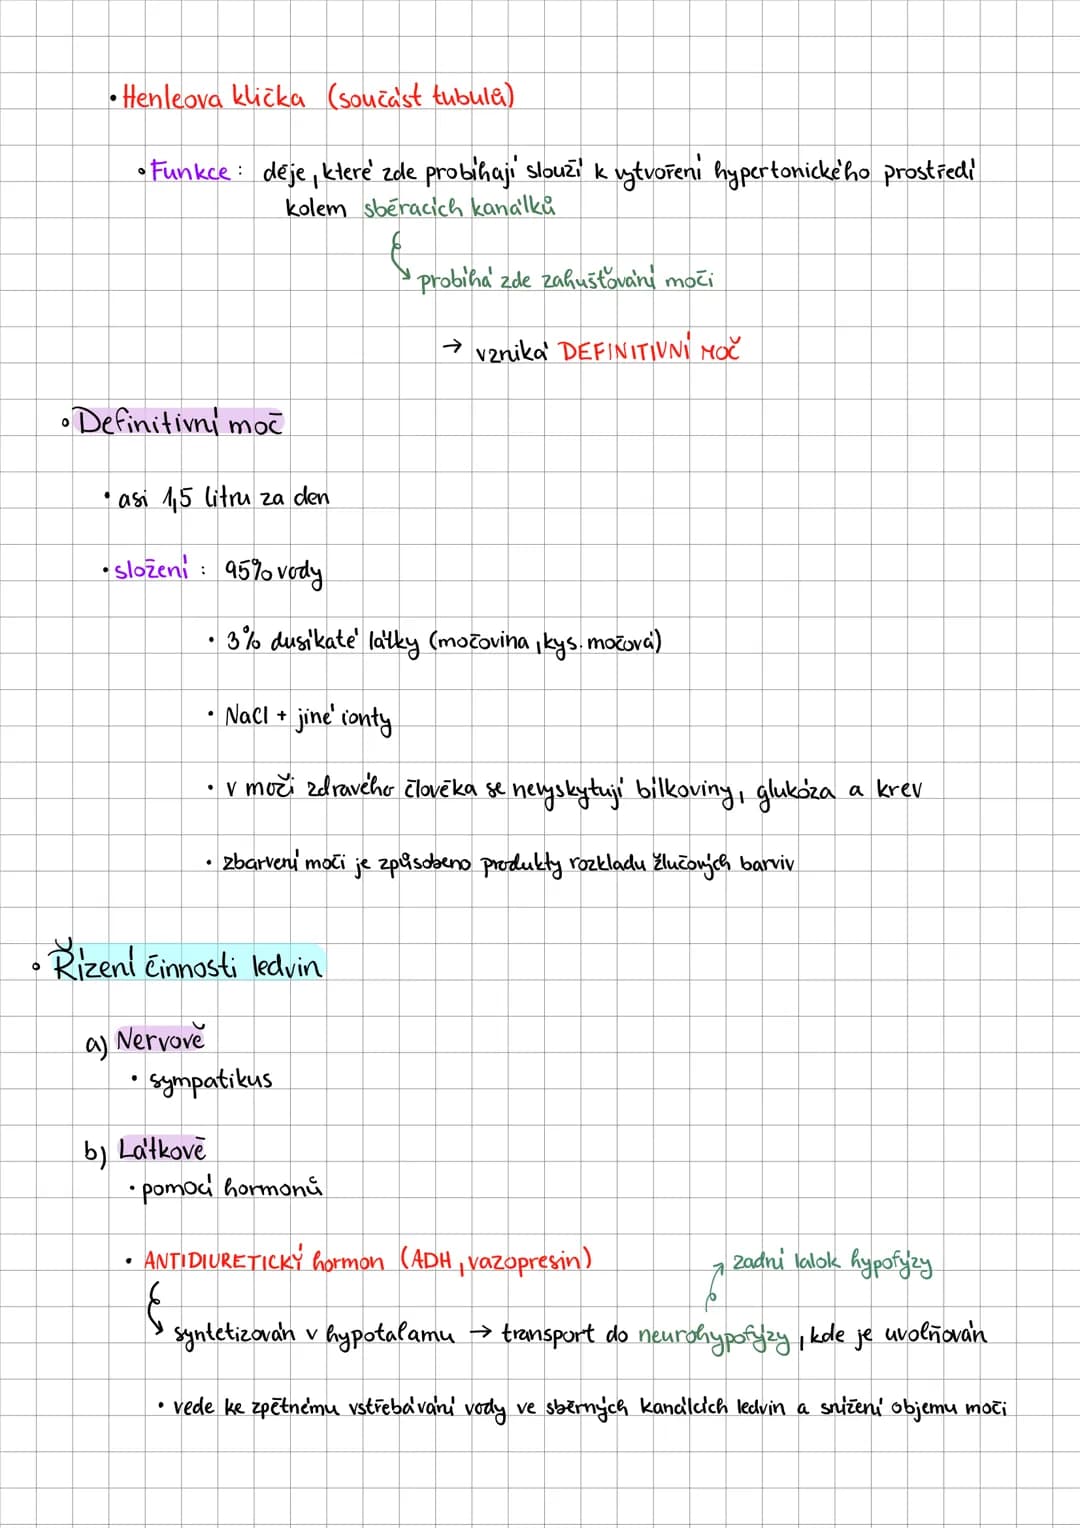 • Henleova klička (součást tubulů)
• Funkce : děje, které zde probíhají slouží k vytvoření hypertonického prostředí
kolem sběracích kanálků
probíhá zde zahušťování moči
→ vzniká DEFINITIVNÍ MOČ
• Definitivní moč
• asi 1,5 litru za den
• složení : 95% vody
• 3% dusíkaté látky (močovina, kys. močová)
• NaCl + jiné ionty
• v moči zdravého člověka se nevyskytují bílkoviny, glukóza a krev
• zbarvení moči je způsobeno produkty rozkladu žlučových barviv
• Řízení činnosti ledvin
a) Nervově
• sympatikus
b) Látkově
• pomocí hormonů
• ANTIDIURETICKÝ hormon (ADH, vazopresin)
zadní lalok hypofýzy
syntetizován v hypotalamu → transport do neurohypofýzy, kde je uvolňován
• vede ke zpětnému vstřebávání vody ve sběrných kanálcích ledvin a snížení objemu moči